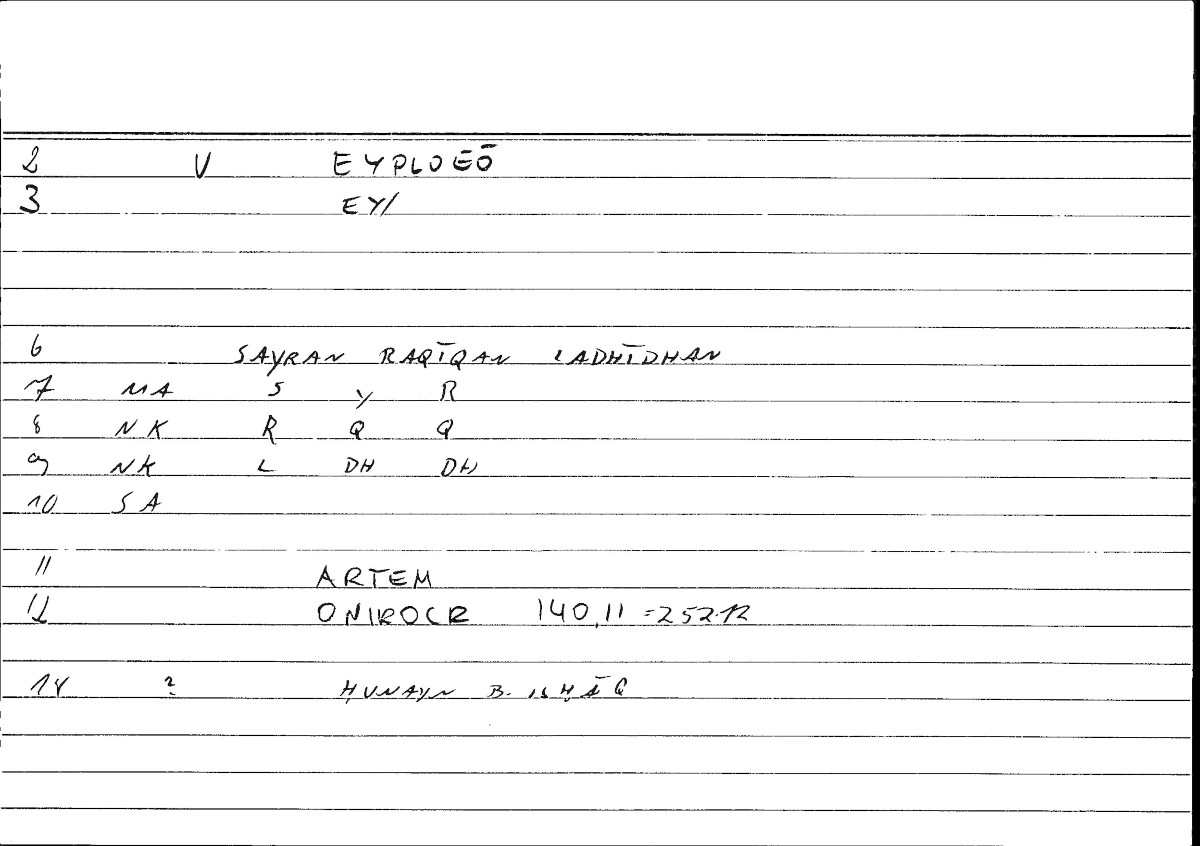 2 V EYPLOĒŌ
3 EY/
6 SAYRAN RAQĪQAN LADHĪDHAN
7 MA S Y R
8 NK R Q Q
9 NK L DH DH
10 SA
11 ARTEM
12 ONIROCR 140,11=252.12
14 ? ḤUNAYN B. ISḤĀQ